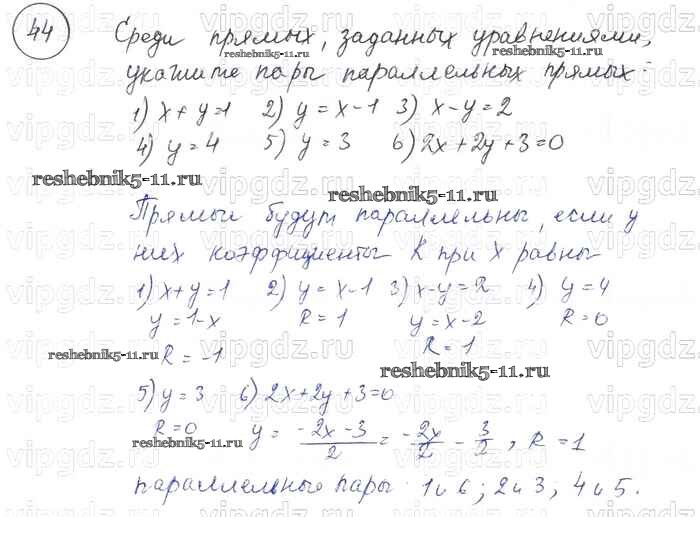 44 Среди прямых, заданных уравнениями,
reshebnik5-11.ru reshebnik5-11.ru
укажите пары параллельных прямых:
1) x+y=1 2) y=x-1 3) x-y=2
4) y=4 5) y=3 6) 2x+2y+3=0
reshebnik5-11.ru
reshebnik5-11.ru
Прямые будут параллельны, если у
них коэффициенты K при X равны
1) x+y=1 2) y=x-1 3) x-y=2 4) y=4
y=1-x R=1 y=x-2 R=0
reshebnik5-11.ru R=-1 R=1
reshebnik5-11.ru
5) y=3 6) 2x+2y+3=0
R=0 y= (-2x-3)/2 = -2x/2 - 3/2, R=1
reshebnik5-11.ru
параллельно пары 1 и 6; 2 и 3; 4 и 5.
vipgdz.ru vipgdz.ru vipgdz.ru vipgdz.ru